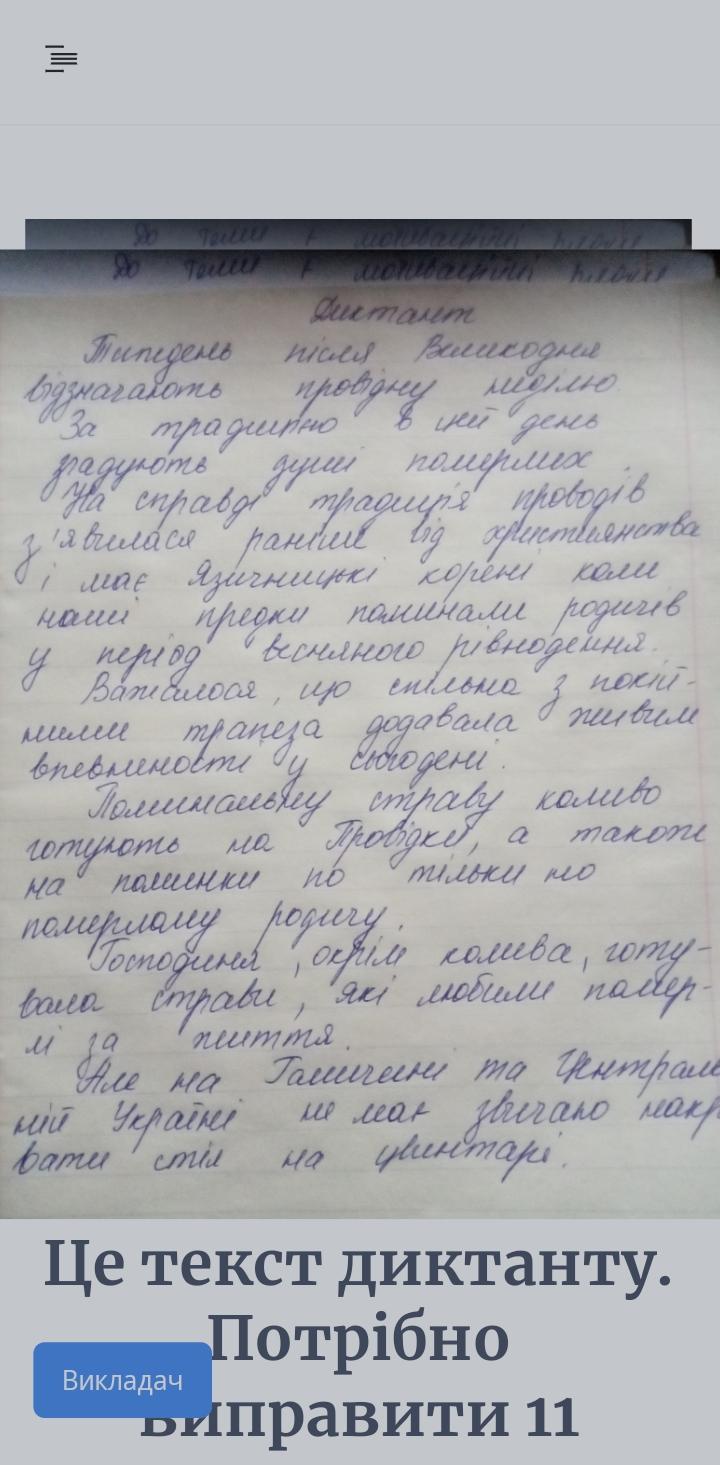 До теми
До теми
Диктант
Тиждень після Великодня
відзначають провідну неділю.
За традицією в цей день
згадують душі померлих.
На справді традиція проводів
з'явилася раніш від християнства
і має Язичницькі корені коли
наші предки поминали родичів
у період весняного рівнодення.
Важалося, що спільна з покій-
ними трапеза додавала живим
впевниності у сьогодені.
Поминальну страву коливо
готують на Провідки, а також
на поминки по тільки но
померлому родичу.
Господиня, окрім колива, готу-
вала страви, які любили помер-
лі за життя.
Але на Галичині та Централь
ній Україні не має звичаю накр
вати стіл на цвинтарі.
Це текст диктанту.
Потрібно
Викладач
виправити 11